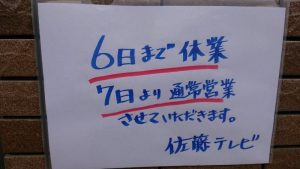 6日まで休業
7日より通常営業
させていただきます。
佐藤テレビ